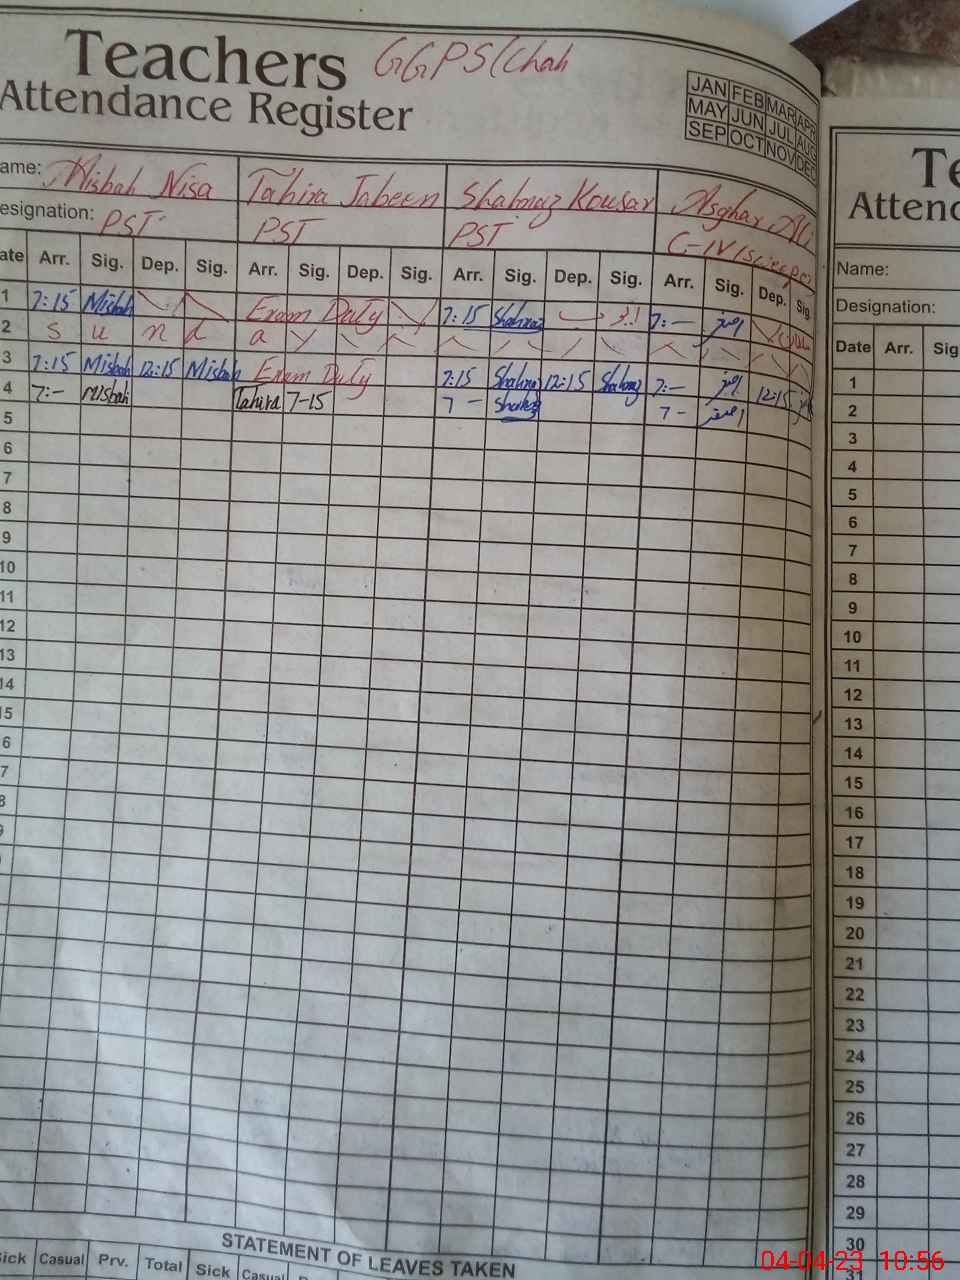 Teachers GGPS(Chah
Attendance Register
JAN FEB MAR APR
MAY JUN JUL AUG
SEP OCT NOV DEC
ame: Misbah Nisa Tahira Jabeen Shahnaz Kousar Asghar Ali
esignation: PST PST PST C-IV
ate Arr. Sig. Dep. Sig. Arr. Sig. Dep. Sig. Arr. Sig. Dep. Sig. Arr. Sig. Dep. Sig.
1 7:15 Misbah Exam Duty 7:15 Shahnaz 7:—
2 S u n d a y
3 7:15 Misbah 12:15 Misbah Exam Duty 7:15 Shahnaz 12:15 Shahnaz 7:— 12:15
4 7:— Misbah Tahira 7-15 7 — Shahnaz 7 -
5
6
7
8
9
10
11
12
13
14
15
6
7
8
9
STATEMENT OF LEAVES TAKEN
ick Casual Prv. Total Sick Casual
Te
Attend
Name:
Designation:
Date Arr. Sig
1
2
3
4
5
6
7
8
9
10
11
12
13
14
15
16
17
18
19
20
21
22
23
24
25
26
27
28
29
30
31
04-04-23 10:56